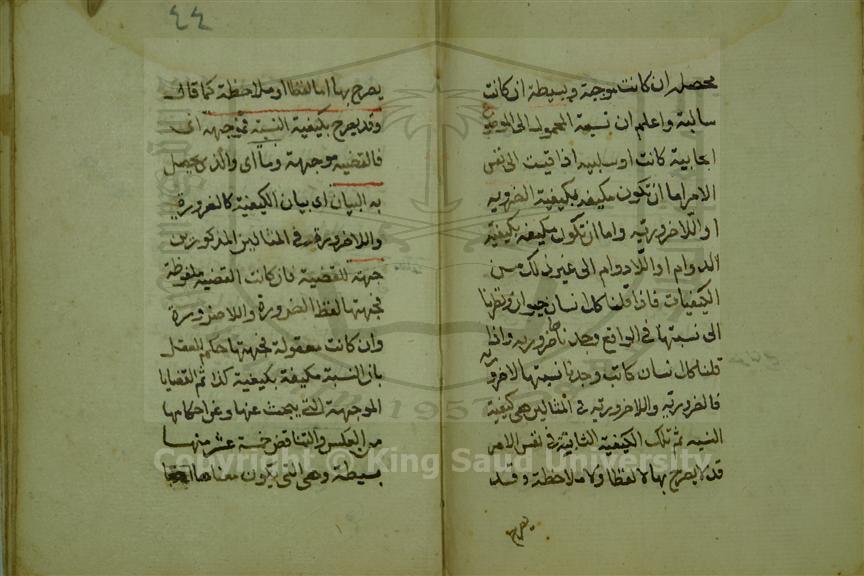 محصله ان كانت موجبة وبسيطة ان كانت
سالبة واعلم ان نسبة المحمول الى الموضوع
ايجابية كانت او سلبيه اذا قيست الى نفس
الامر اما ان تكون مكيفه بكيفية الضروريه
او اللاضروريه واما ان تكون مكيفه بكيفية
الدوام او اللادوام الى غير ذلك من
الكيفيات فاذا قلنا كل انسان حيوان ونظرنا
الى نسبتها في الواقع وجدناها ضروريه واذا
قلنا كل انسان كاتب وجدنا نسبتها لاضروريه
فالضروريه واللاضروريه في المثالين هي كيفية
النسبه ثم تلك الكيفية الثابتة في نفس الامر
قد لا يصرح بها لا لفظا ولا ملاحظة وقد
يصرح
٤٤
يصرح بها اما لفظا او ملاحظة كما قال
وقد يصرح بكيفية النسبة فموجهة اى
فالقضية موجهة وما اى والذى يحصل
به البيان اى بيان الكيفية كالضرورة
واللاضرورة في المثالين المذكورين
جهة للقضية فان كانت القضية ملفوظة
فجهتها لفظ الضرورة واللاضرورة
وان كانت معقولة فجهتها حكم العقل
بان النسبة مكيفة بكيفية كذا ثم القضايا
الموجهة التى يبحث عنها وعن احكامها
من العكس والتناقض خمسة عشر منها
بسيطة وهى التى يكون معناها
Copyright © King Saud University
1957